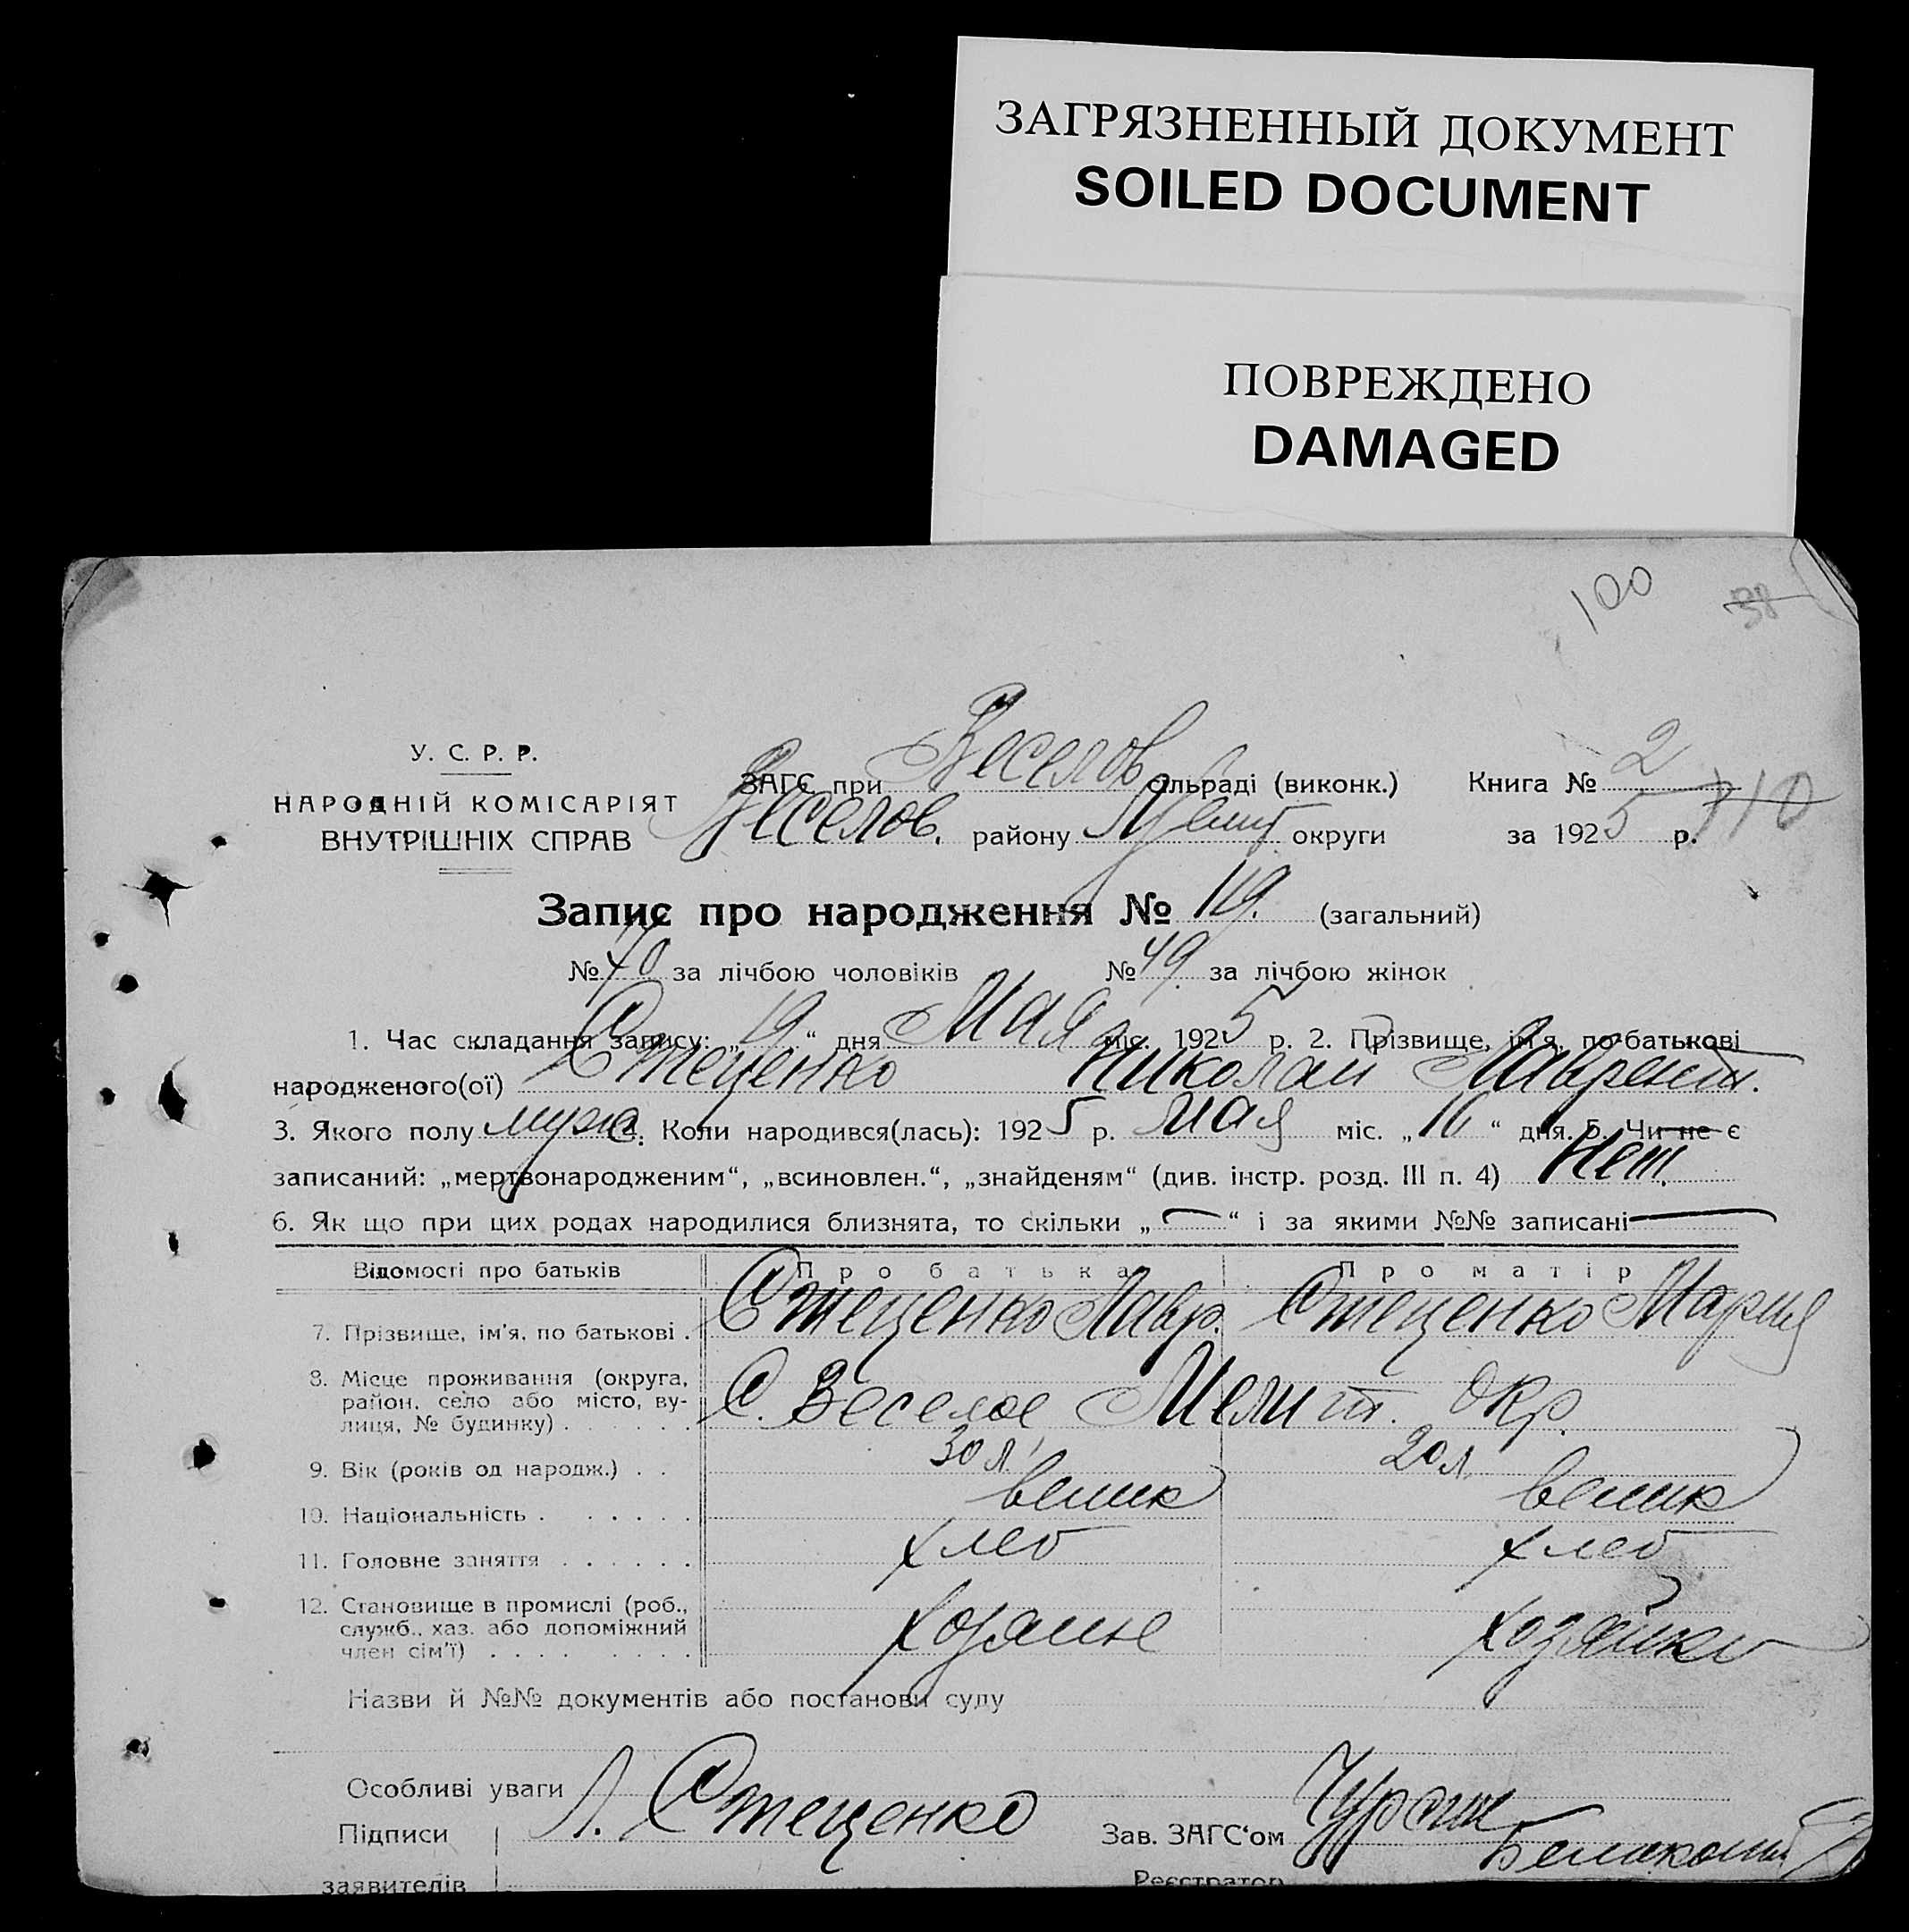 ЗАГРЯЗНЕННЫЙ ДОКУМЕНТ
SOILED DOCUMENT
ПОВРЕЖДЕНО
DAMAGED
100
38
У. С. Р. Р.
НАРОДНІЙ КОМІСАРІЯТ
ВНУТРІШНІХ СПРАВ
ЗАГС при Веселов сільраді (виконк.) Книга № 2
Веселов. району округи за 1925 р. 110
Запис про народження № 119. (загальний)
№ 70 за лічбою чоловіків № 49. за лічбою жінок
1. Час складання запису: „19“ дня Мая міс. 1925 р. 2. Прізвище, ім'я, по батькові
народженого(ої) Стеценко Николай Лаврент.
3. Якого полу муж. 4. Коли народився(лась): 1925 р. Мая міс. „16“ дня. 5. Чи не є
записаний: „мертвонародженим“, „всиновлен.“, „знайденям“ (див. інстр. розд. III п. 4) Нет.
6. Як що при цих родах народилися близнята, то скільки „—“ і за якими №№ записані —
Відомості про батьків Про батька Про матір
7. Прізвище, ім'я, по батькові . Стеценко Лавр. Стеценко Мария
8. Місце проживання (округа,
район, село або місто, ву-
лиця, № будинку) . . . . . . С. Веселое Мелит. Окр.
9. Вік (років од народж.) . . 30 л. 20 л.
10. Національність . . . . . . велик велик
11. Головне заняття . . . . . . хлеб хлеб
12. Становище в промислі (роб.,
служб., хаз. або допоміжний
член сім'ї) . . . . . . . . хозяине хозяйка
Назви й №№ документів або постанови суду
Особливі уваги
Підписи Л. Стеценко Зав. ЗАГС'ом
заявителів Реєстратор